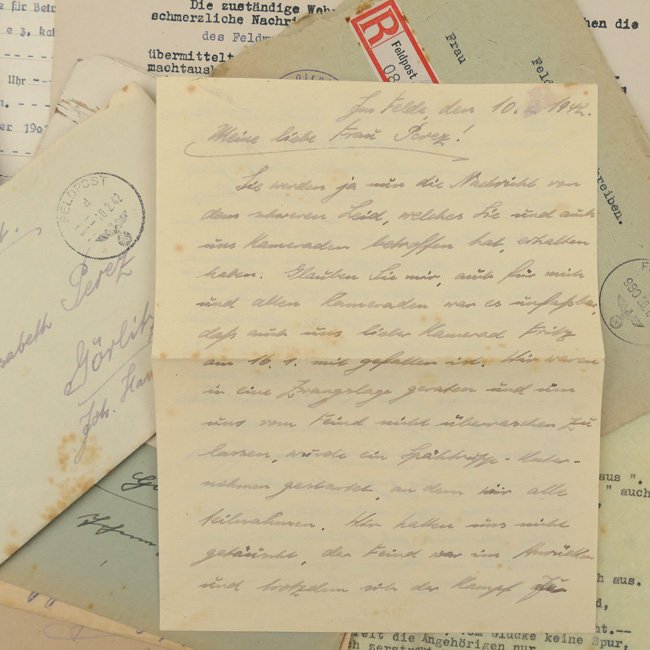 Die zuständige Weh
schmerzliche Nachri
des Feldw
übermittelt
machtaus
hen die
e für Bet
Uhr
er 190
R
Feldpost
08
Frau
Fel
reiben.
FELDPOST
d
10.2.42
Perez
Görlitz
Joh.
Im Felde, den 10. 1942.
Meine liebe Frau Perez!
Sie werden ja nun die Nachricht von
dem schweren Leid, welches Sie und auch
uns Kameraden betroffen hat, erhalten
haben. Glauben Sie mir, auch für mich
und allen Kameraden war es unfaßbar,
daß auch uns lieber Kamerad Fritz
am 16. 1. mit gefallen ist. Wir waren
in eine Zwangslage geraten und um
uns vom Feind nicht überraschen zu
lassen, wurde ein Spähtrupp-Unter-
nehmen gestartet, an dem wir alle
teilnahmen. Wir hatten uns nicht
getäuscht, der Feind war im Anrücken
und trotzdem sich der Kampf
aus ".
" auch
aus.
d,
ht.--
vom Glücke keine Spur,
die Angehörigen nur